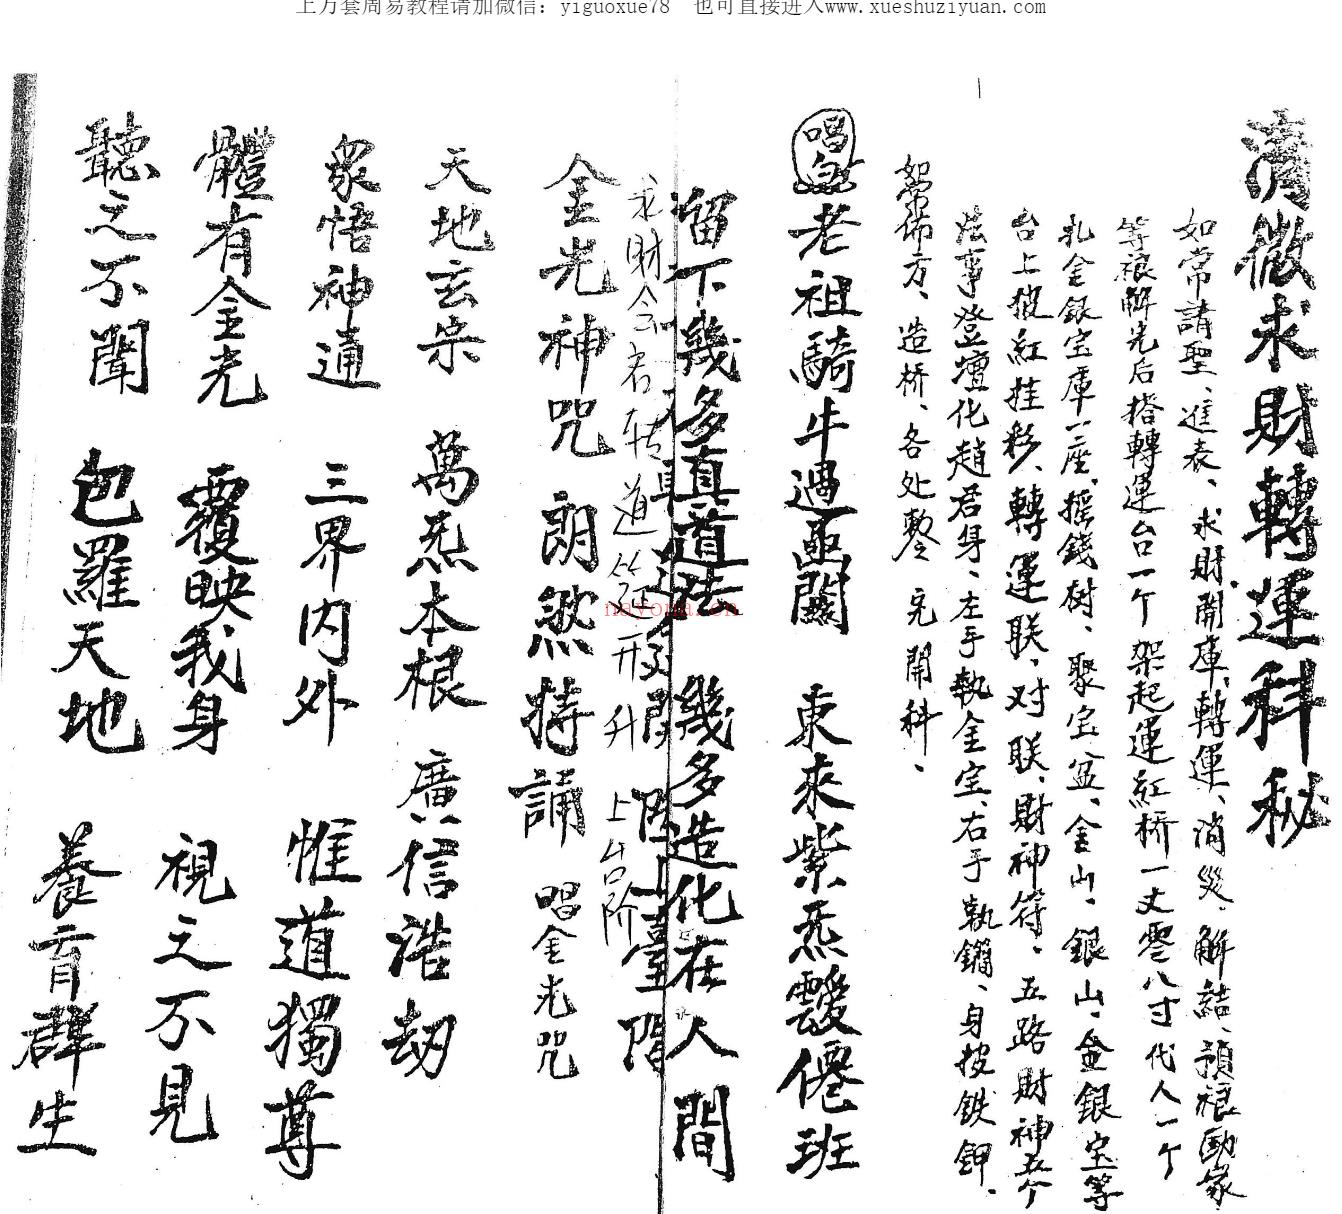 上万套周易教程请加微信：yiguoxue78 也可直接进入www.xueshuziyuan.com
清微求財轉運科秘
如常請聖、進表、求財、開庫、轉運、消災、解結、預禳
等禳解先后搭轉運台一个架起運紅桥一丈零八寸代人一个
扎金銀宝庫一座、摇錢树、聚宝盆、金山、銀山、金銀宝等
台上披紅挂彩、轉運联、对联、財神符、五路財神
法事登壇化趙君身、左手執金宝、右手執鐧、身披鉄鉀、
如常佈方、造桥、各处 完開科、
唱
老祖騎牛過函關 東來紫炁靉僊班
留下幾多真道法 幾多造化在人間
求財会 转道 升 上台阶
臺階
金光神咒 朗然持誦 唱金光咒
天地玄宗 萬炁本根 廣信浩劫
衆悟神通 三界内外 惟道獨尊
體有金光 覆映我身 視之不見
聽之不聞 包羅天地 養育群生
nayona.cn